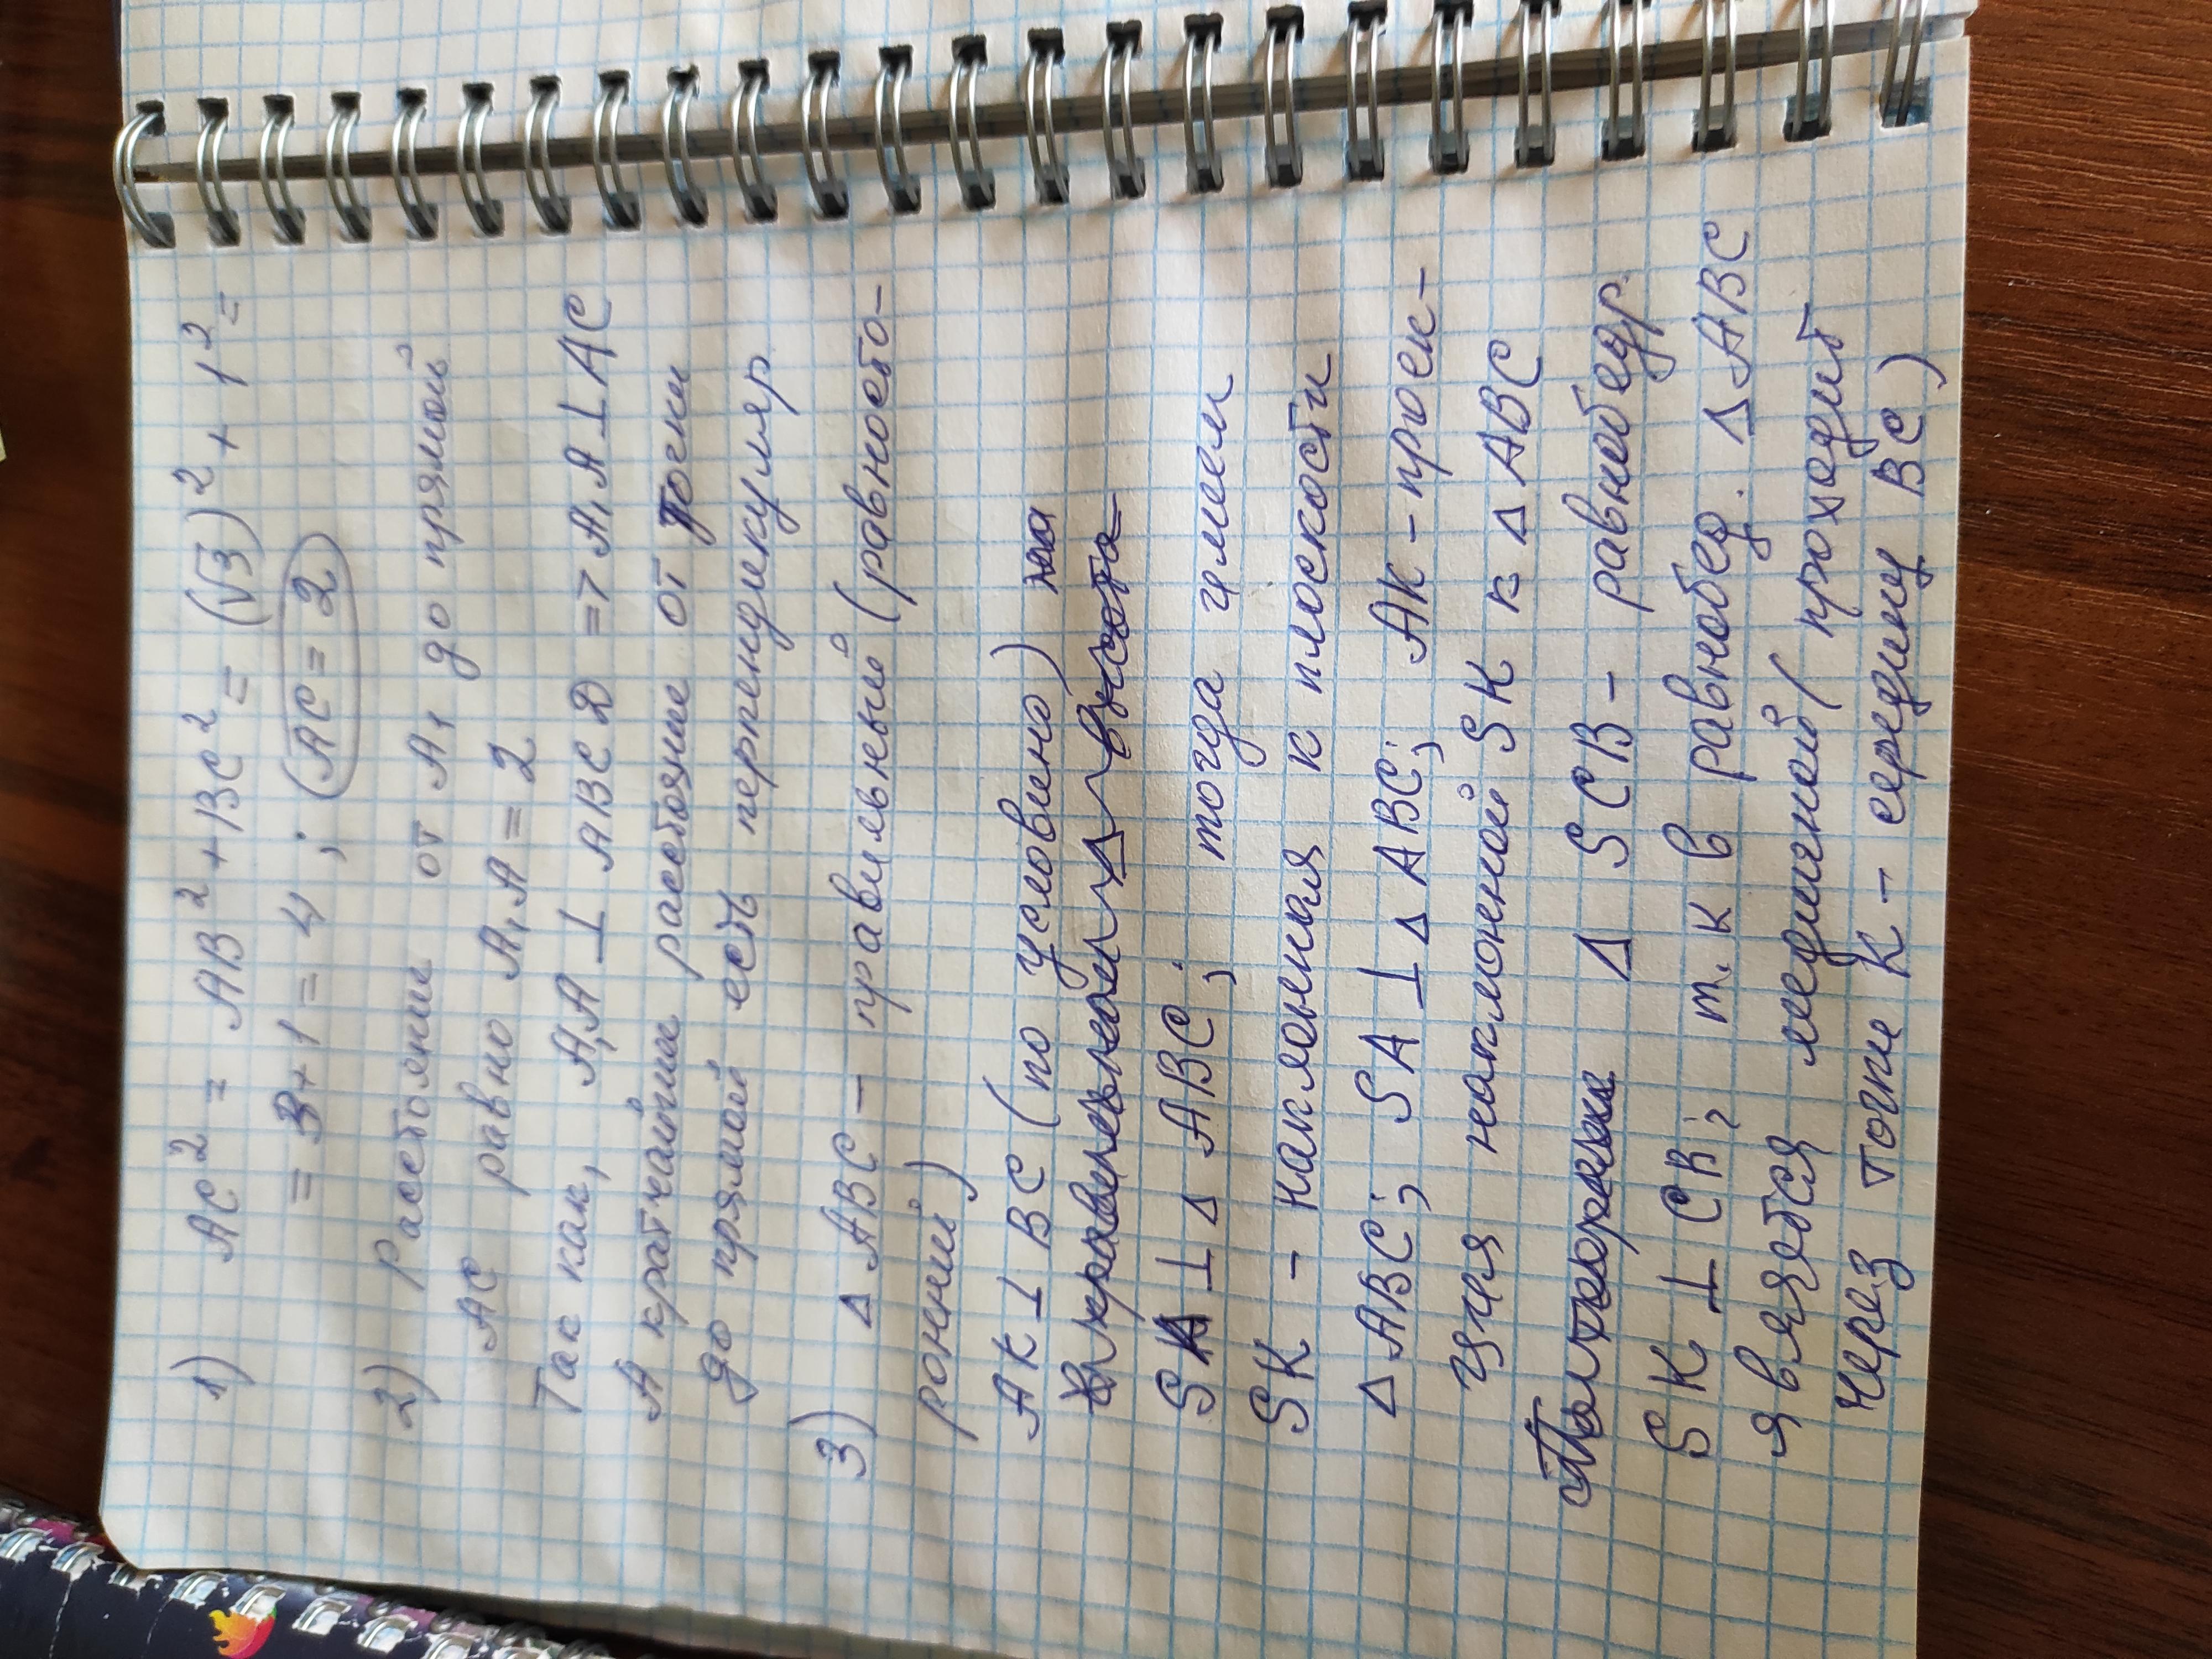 1) AC² = AB² + BC² = (√3)² + 1² =
= 3 + 1 = 4 ; AC = 2
2) Расстояние от A₁ до прямой
AC равно A₁A = 2
Так как, A₁A ⊥ ABCD => A₁A ⊥ AC
А кратчайшее расстояние от точки
до прямой есть перпендикуляр
3) Δ ABC – правильный (равносто-
ронний)
AK ⊥ BC (по условию)
В правильном Δ высота
SA ⊥ Δ ABC ; тогда имеем
SK – наклонная к плоскости
Δ ABC; SA ⊥ Δ ABC; AK – проек-
ция наклонной SK к Δ ABC
Δ SCB – равнобедр.
SK ⊥ CB; т.к в равнобед. Δ ABC
является медианой (проходит
через точки K – середину BC)